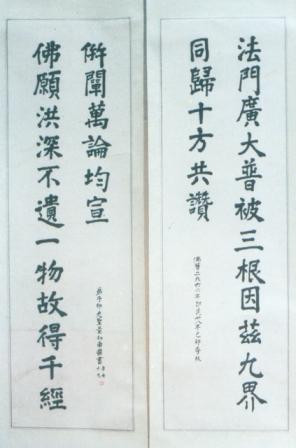 法門廣大普被三根因茲九界
同歸十方共讚
佛願洪深不遺一物故得千經
併闡萬論均宣